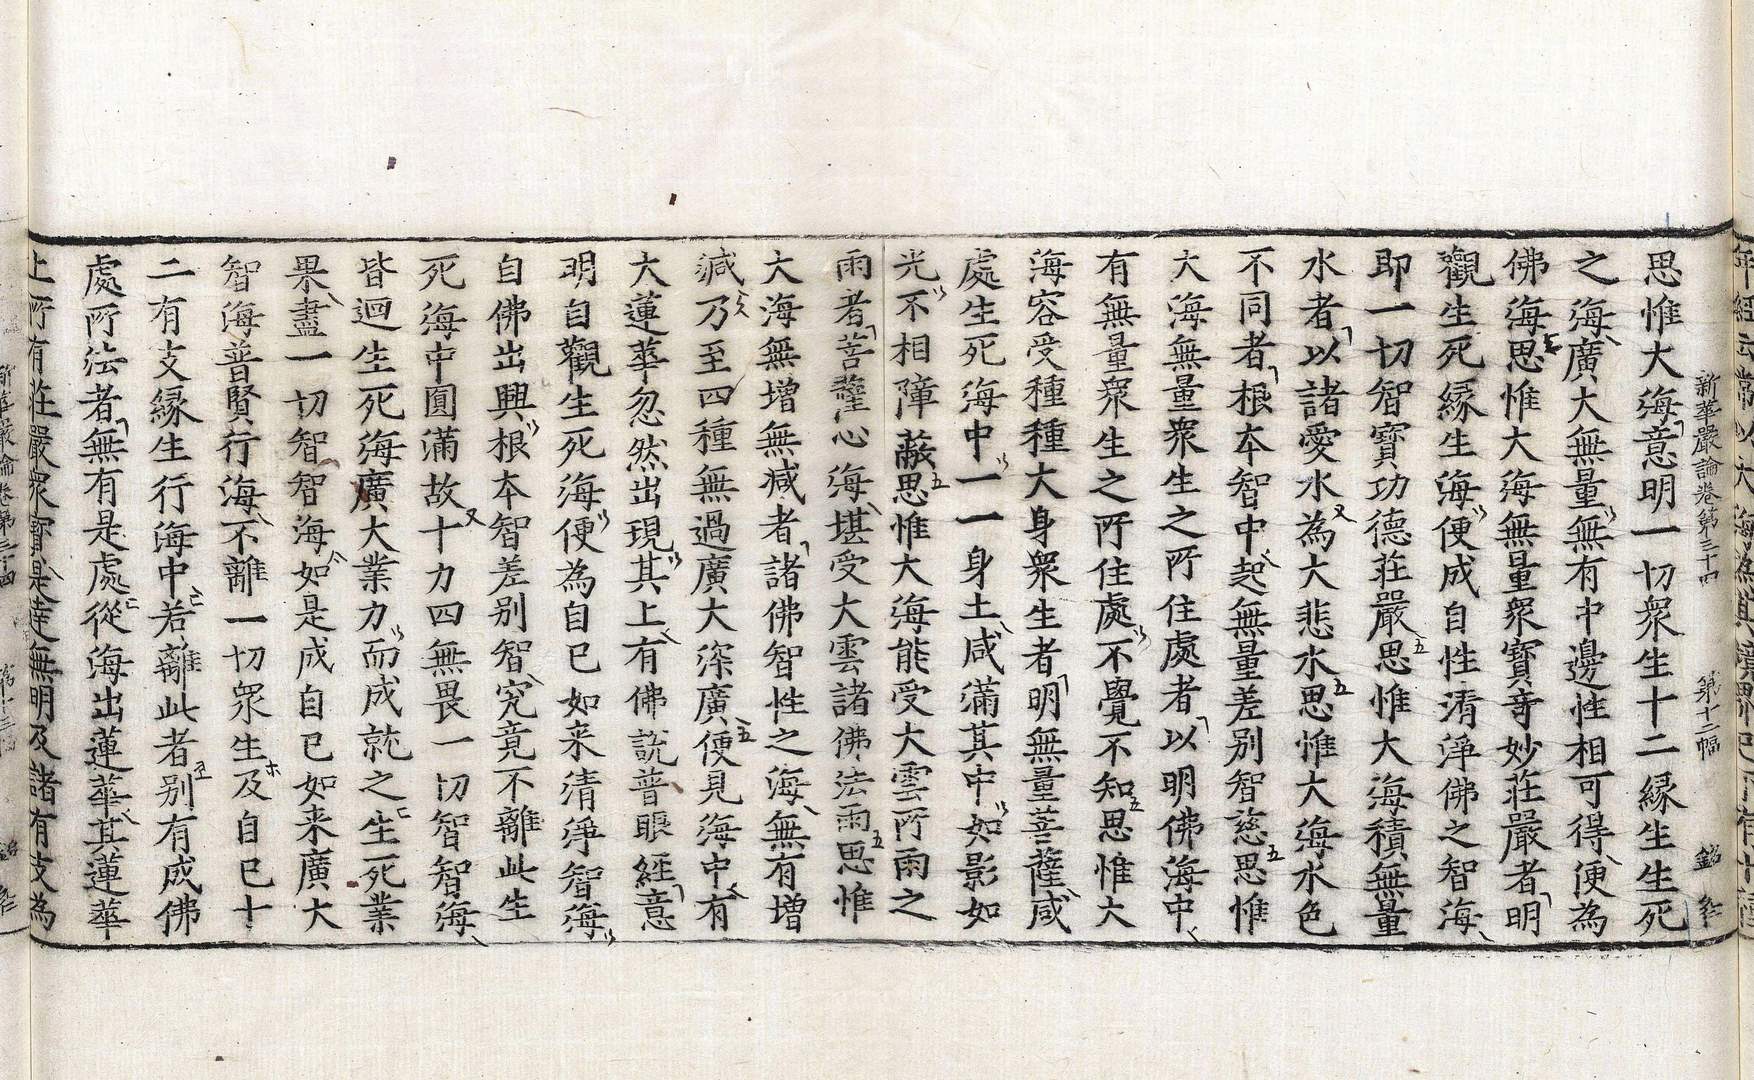 新華嚴論卷第三十四　第十二幅　銘
思惟大海意明一切衆生十二縁生生死
之海廣大無量無有中邊性相可得便為
佛海思惟大海無量衆寶竒妙莊嚴者明
觀生死縁生海便成自性清淨佛之智海
即一切智寶功德莊嚴思惟大海積無量
水者以諸愛水為大悲水思惟大海水色
不同者根本智中起無量差别智慈思惟
大海無量衆生之所住處者以明佛海中
有無量衆生之所住處不覺不知思惟大
海容受種種大身衆生者明無量菩薩咸
處生死海中一一身土咸滿其中如影如
光不相障蔽思惟大海能受大雲所雨之
雨者菩薩心海堪受大雲諸佛法雨思惟
大海無增無減者諸佛智性之海無有增
減乃至四種無過廣大深廣便見海中有
大蓮華忽然出現其上有佛説普眼經意
明自觀生死海便為自已如来清淨智海
自佛出興根本智差别智究竟不離此生
死海中圓滿故十力四無畏一切智智海
皆迴生死海廣大業力而成就之生死業
果盡一切智智海如是成自已如来廣大
智海普賢行海不離一切衆生及自已十
二有支縁生行海中若離此者别有成佛
處所法者無有是處從海出蓮華其蓮華
上所有莊嚴衆寶是達無明及諸有支為